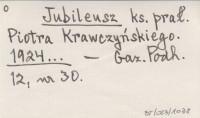 Jubileusz ks. prał.
Piotra Krawczyńskiego.
1924... — Gaz. Podh.
12, nr 30.